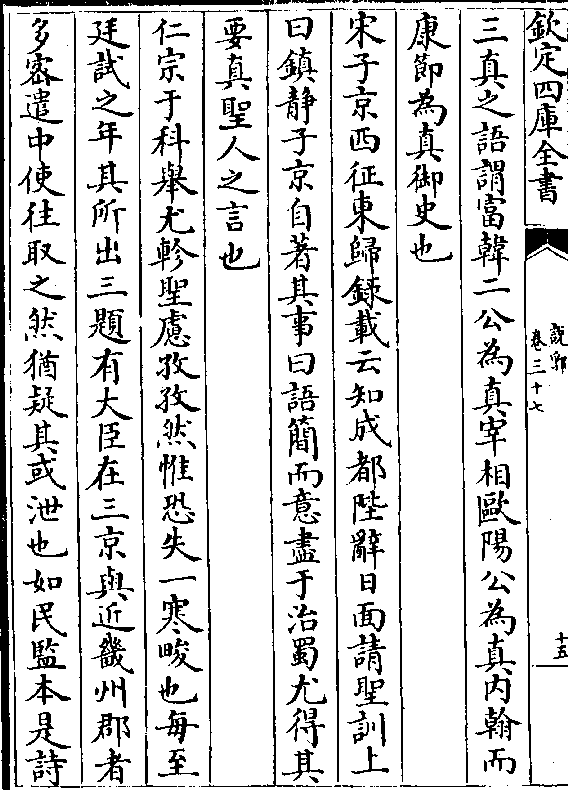 欽定四庫全書
說郛
卷三十七
十五
三真之語謂富韓二公為真宰相歐陽公為真内翰而
康節為真御史也
宋子京西征東歸錄載云知成都陛辭日面請聖訓上
曰鎮静子京自著其事曰語簡而意盡于治蜀尤得其
要真聖人之言也
仁宗于科舉尤軫聖慮孜孜然惟恐失一寒畯也每至
廷試之年其所出三題有大臣在三京與近畿州郡者
多密遣中使往取之然猶疑其或泄也如民監本是詩